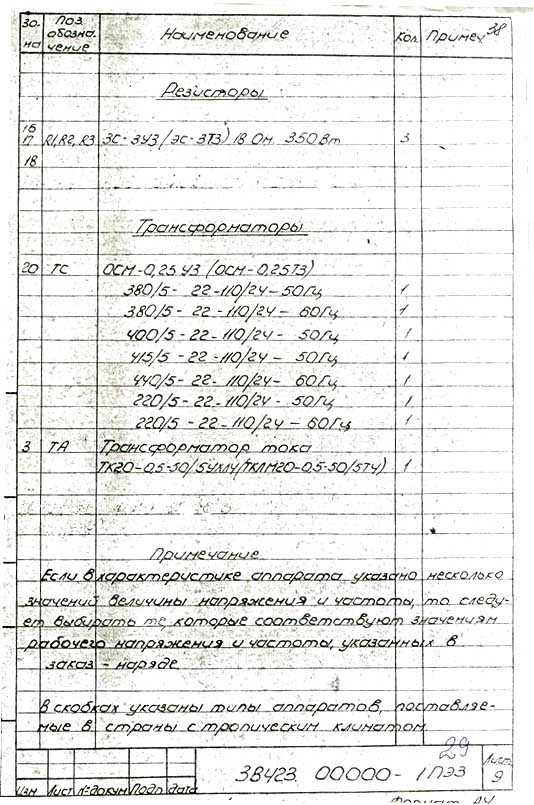 Зо- на
Поз. обозна- чение
Наименование
Кол.
Примеч.
38
Резисторы
16
17 R1,R2,R3 ЭС-3У3/ЭС-3Т3) 18 Ом 350Вт 3
18
Трансформаторы
20 ТС ОСМ-0,25 У3 (ОСМ-0,25Т3)
380/5-22-110/24-50Гц 1
380/5-22-110/24-60Гц 1
400/5-22-110/24-50Гц 1
415/5-22-110/24-50Гц 1
440/5-22-110/24-60Гц 1
220/5-22-110/24-50Гц 1
220/5-22-110/24-60Гц 1
3 ТА Трансформатор тока
ТК20-0,5-50/5УХЛ4/ТКЛМ20-0,5-50/5Т4) 1
Примечание
Если в характеристике аппарата указано несколько
значений величины напряжения и частоты, то следу-
ет выбирать те, которые соответствуют значениям
рабочего напряжения и частоты, указанных в
заказ-наряде
В скобках указаны типы аппаратов, поставляе-
мые в страны с тропическим климатом
29
3В423. 00000-1ПЭ3
Лист
9
Изм Лист №докум Подп. дата
Формат А4